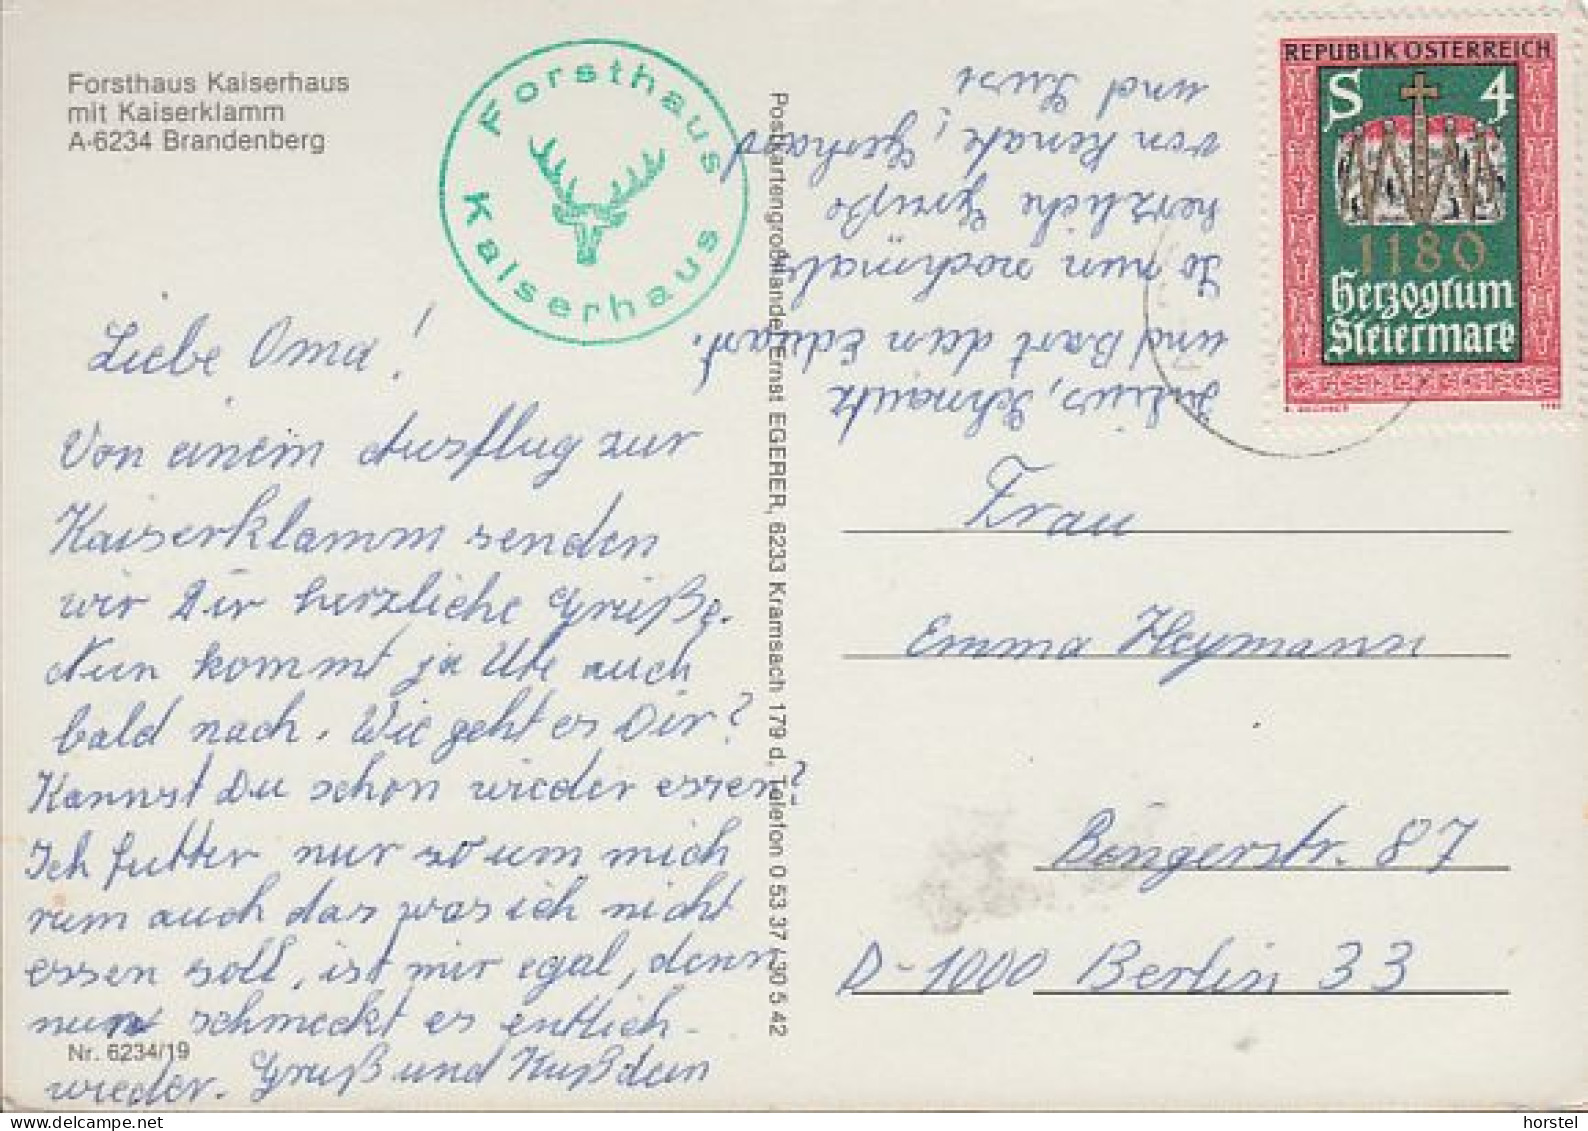 Forsthaus Kaiserhaus
mit Kaiserklamm
A-6234 Brandenberg
Forsthaus
Kaiserhaus
Liebe Oma!
Von einem Ausflug zur
Kaiserklamm senden
wir Dir herzliche Grüße.
Nun kommt ja Ute auch
bald nach. Wie geht es Dir?
Kannst Du schon wieder essen?
Ich futter nur so um mich
rum auch das was ich nicht
essen soll, ist mir egal, denn
nun schmeckt es entlich
wieder. Gruß und Kuß dein
Nr. 6234/19
Julius, Schnautz
und Bart dein Eduart.
So nun nochmals
herzliche Grüße
von Renate, Gerhard
und Susi
Postkartengroßhandel Ernst EGERER, 6233 Kramsach 179 d, Telefon 0 53 37 / 30 5 42
REPUBLIK ÖSTERREICH
S 4
1180
Herzogtum
Steiermark
Frau
Emma Heymann
87
D-1000 Berlin 33
horstel
www.delcampe.net